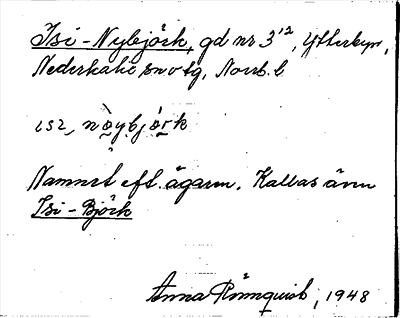 Isi-Nybjörk, gd nr 3¹², Ytterbyn,
Nederkalix snvtg, Norrb. l
ısı, nøybjørk
Namnet eft. ägaren. Kallas även
Isi-Björk
Anna Rönnquist, 1948